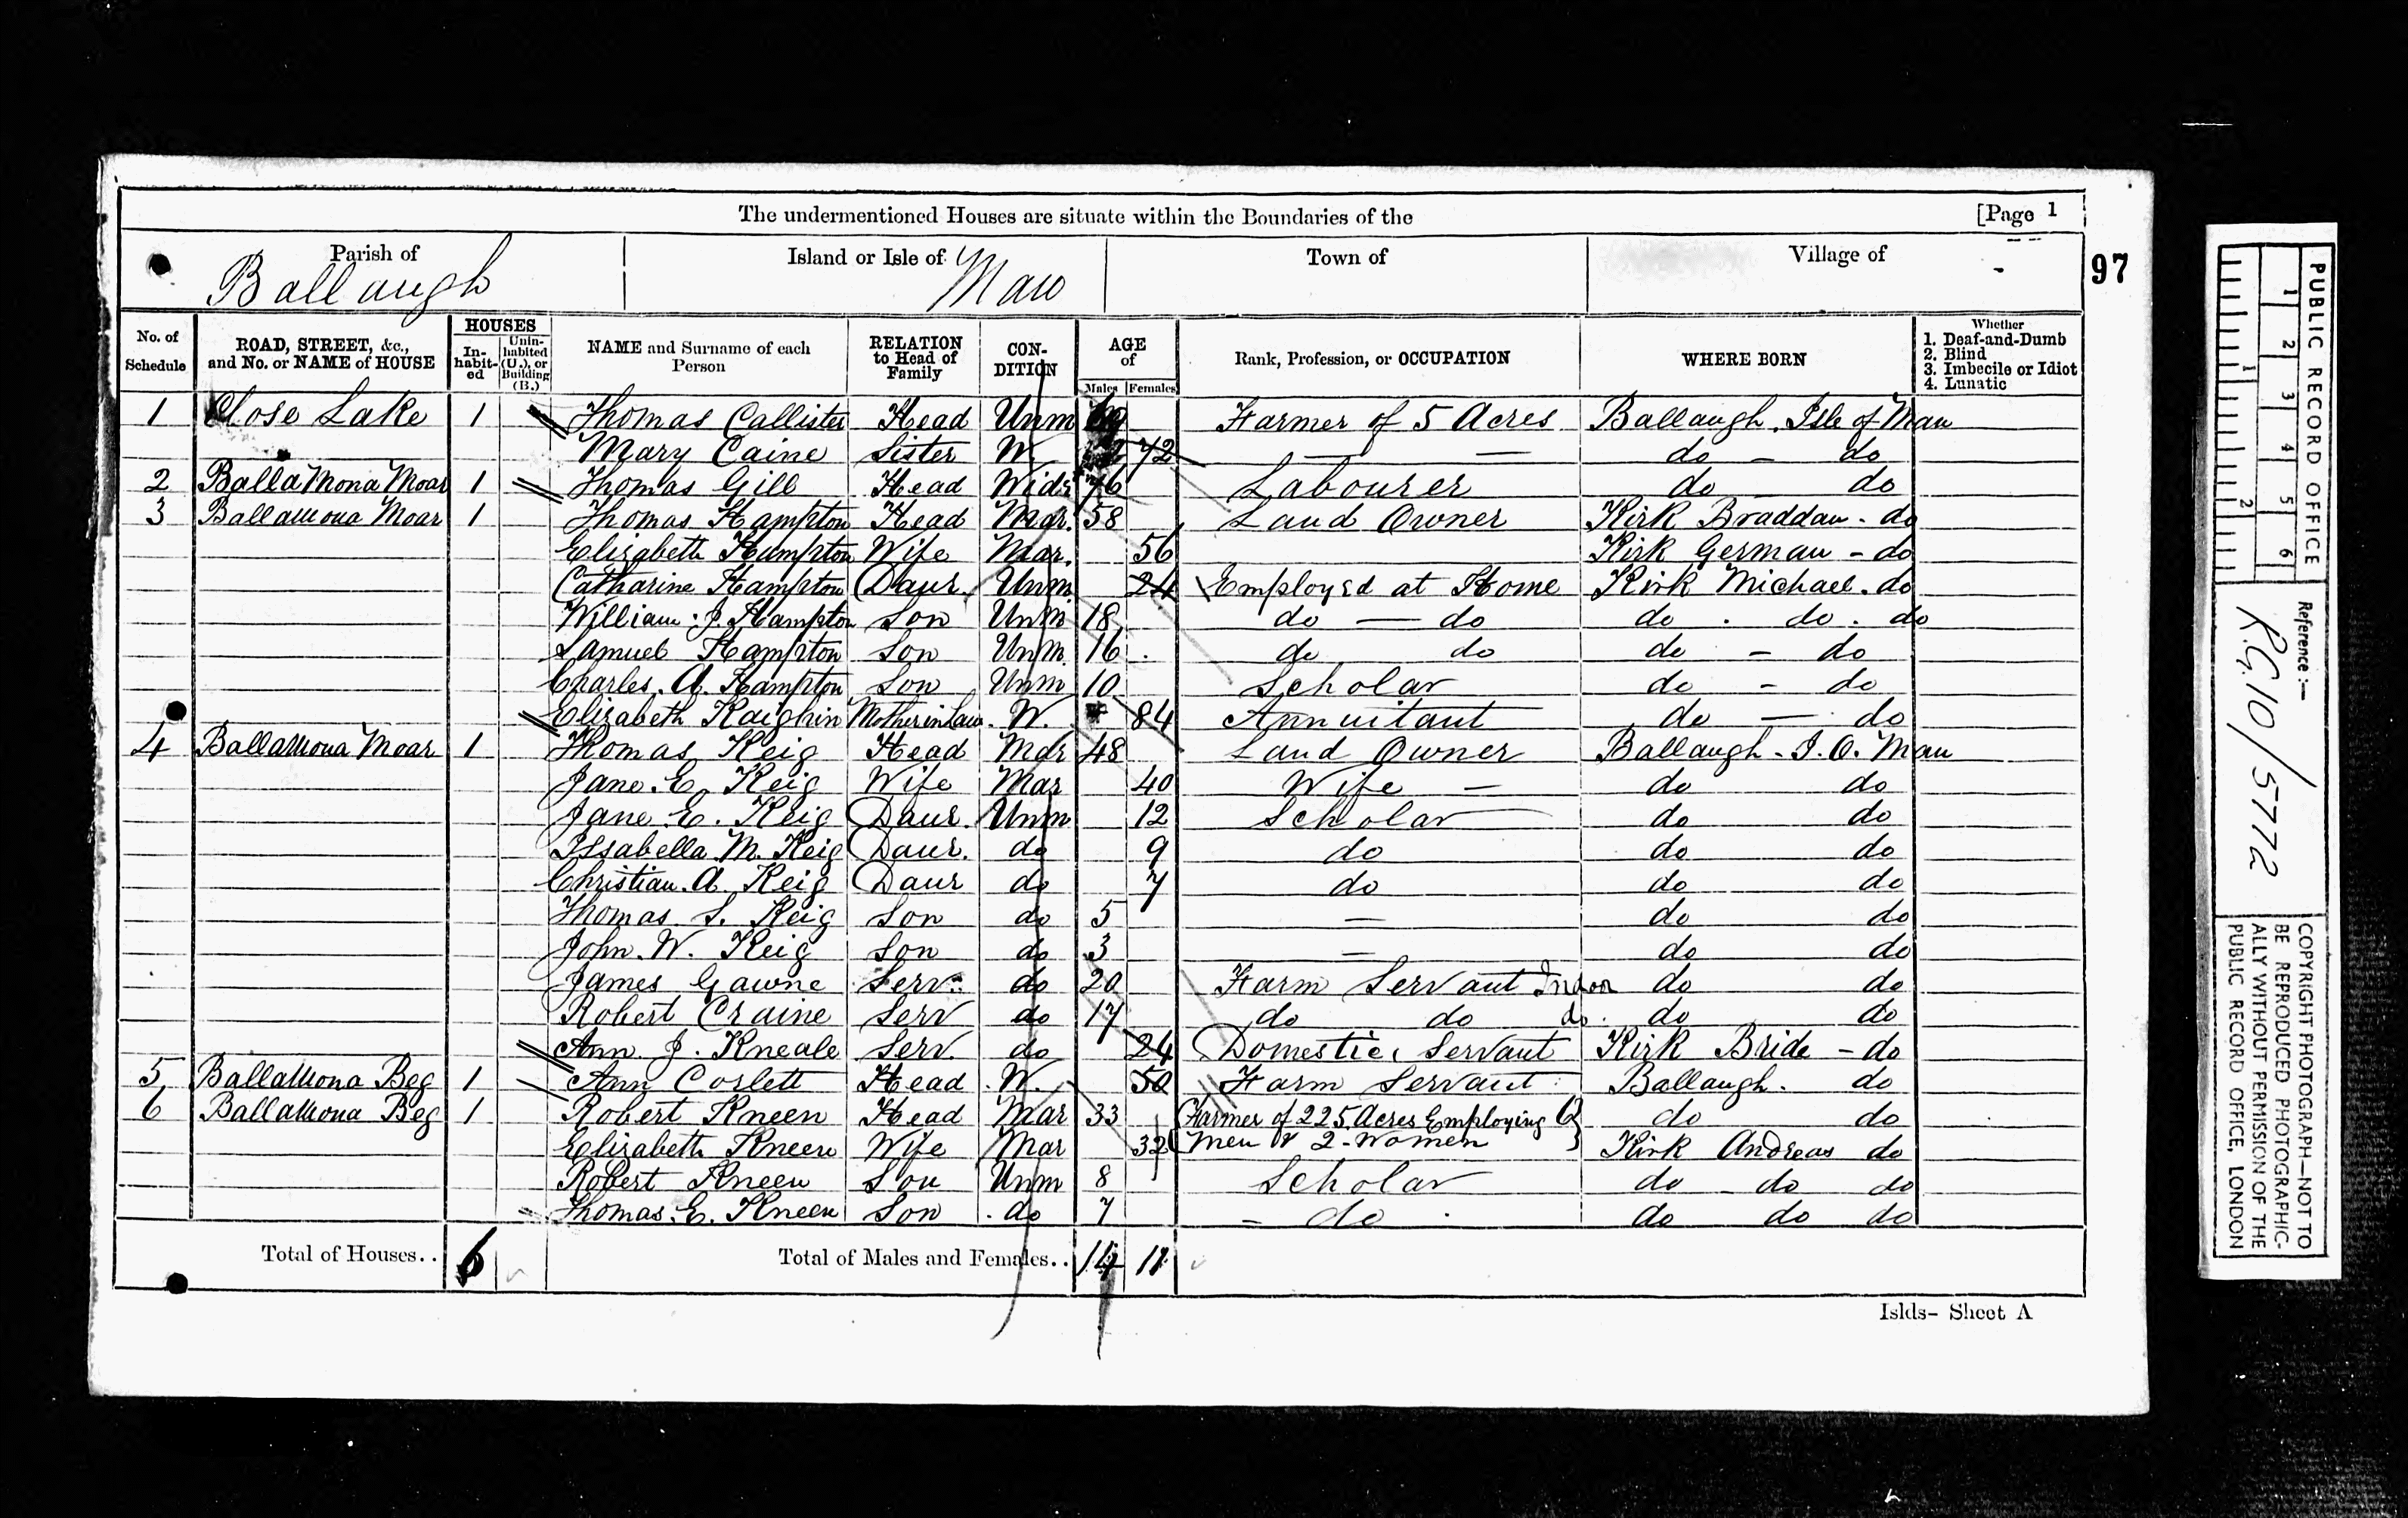 The undermentioned Houses are situate within the Boundaries of the [Page 1
97
Parish of Ballaugh Island or Isle of Man Town of Village of -
No. of Schedule ROAD, STREET, &c., and No. or NAME of HOUSE HOUSES In-habit-ed Unin-habited (U.), or Building (B.) NAME and Surname of each Person RELATION to Head of Family CON-DITION AGE of Males Females Rank, Profession, or OCCUPATION WHERE BORN Whether 1. Deaf-and-Dumb 2. Blind 3. Imbecile or Idiot 4. Lunatic
1 Close Lake 1 Thomas Callister Head Unm Farmer of 5 Acres Ballaugh. Isle of Man
Mary Caine Sister W. 72 — — do - do
2 Balla Mona Moar 1 Thomas Gill Head Widr 76 Labourer do do
3 Ballamona Moar 1 Thomas Hampton Head Mar. 58 Land Owner Kirk Braddan - do
Elizabeth Hampton Wife Mar. 56 Kirk German - do
Catharine Hampton Daur. Unm. 24 Employed at Home Kirk Michael. do
William. J. Hampton Son Unm 18 do — do do . do . do
Samuel Hampton Son Unm. 16 do do do - do
Charles. A. Hampton Son Unm 10 Scholar do - do
Elizabeth Kaighin Mother in Law. W. 84 Annuitant do — do
4 Ballamona Moar 1 Thomas Keig Head Mar 48 Land Owner Ballaugh - I. O. Man
Jane. E. Keig Wife Mar 40 Wife - do do
Jane. E. Keig Daur. Unm 12 Scholar do do
Issabella M. Keig Daur. do 9 do do do
Christian. A. Keig Daur do 7 do do do
Thomas S. Keig Son do 5 — do do
John. W. Keig Son do 3 — do do
James Gawne Serv. do 20 Farm Servant Indoor do do
Robert Craine Serv do 17 do do do. do do
Ann. J. Kneale Serv. do 24 Domestic Servant Kirk Bride - do
5 Ballamona Beg 1 Ann Corlett Head W. 50 Farm Servant Ballaugh. do
6 Ballamona Beg 1 Robert Kneen Head Mar 33 Farmer of 225 Acres Employing do do
Elizabeth Kneen Wife Mar 32 Men & 2 Women Kirk Andreas do
Robert Kneen Son Unm 8 Scholar do do do
Thomas. E. Kneen Son do 7 - do do do do
Total of Houses.. 6 Total of Males and Females.. 14 11
Islds- Sheet A
PUBLIC RECORD OFFICE
1 2 3 4 5 6
1 2
Reference :—
R.G.10/5772
COPYRIGHT PHOTOGRAPH—NOT TO
BE REPRODUCED PHOTOGRAPHIC-
ALLY WITHOUT PERMISSION OF THE
PUBLIC RECORD OFFICE, LONDON